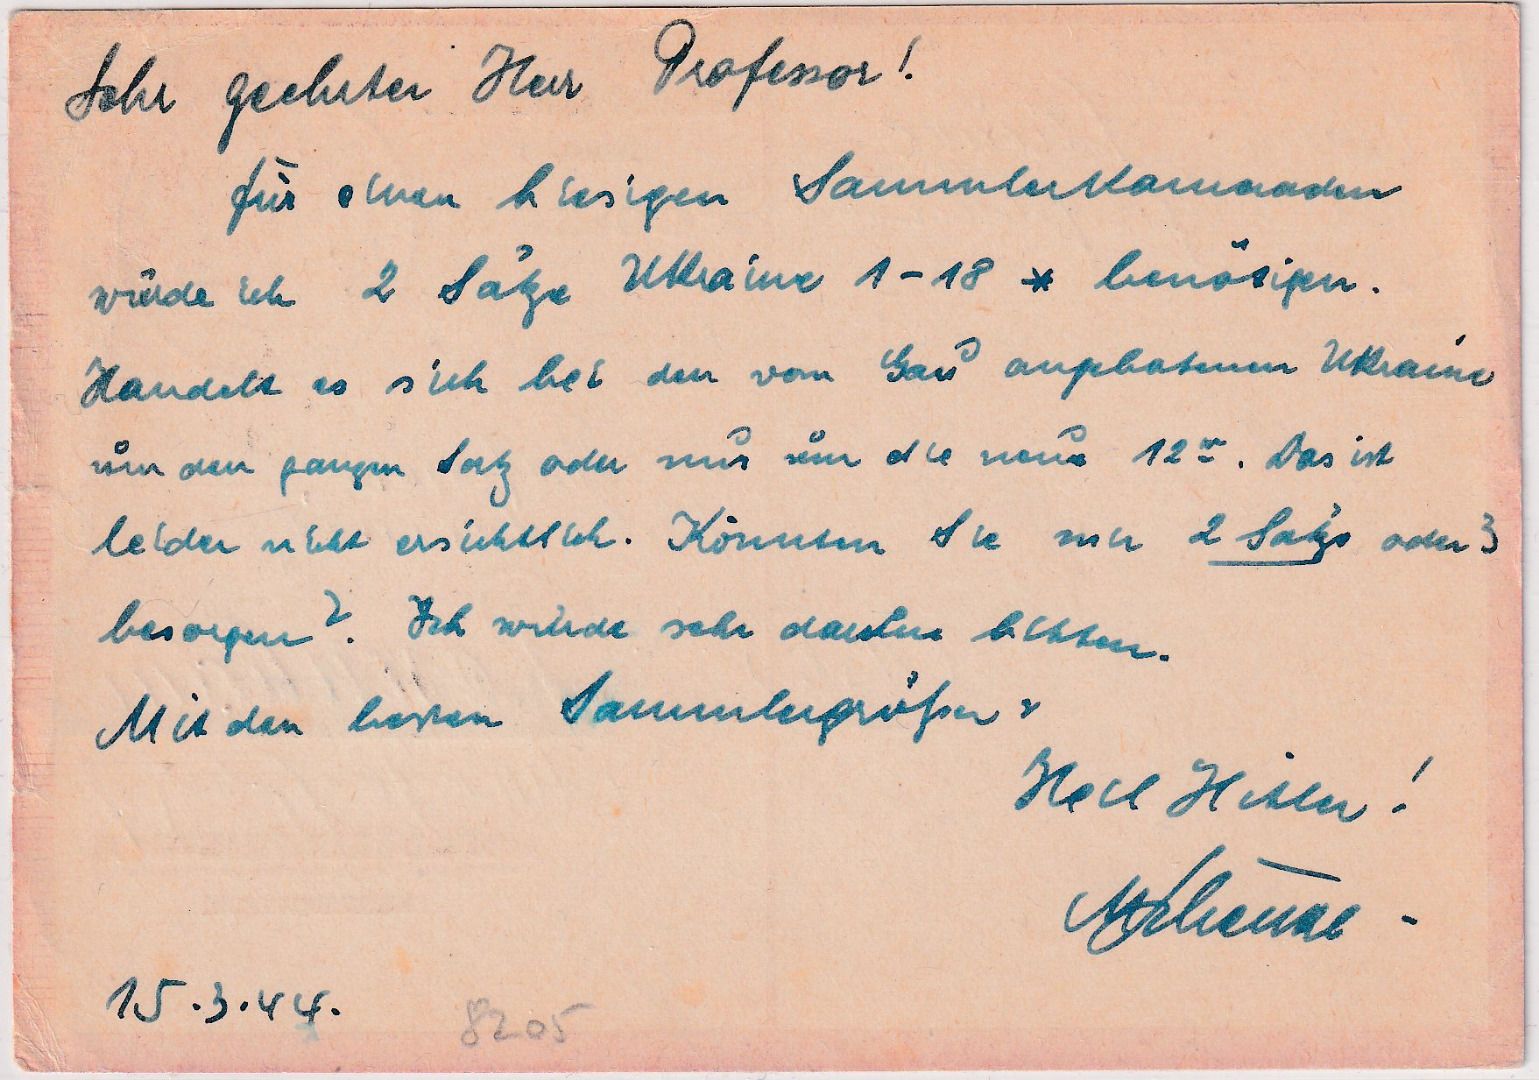 Sehr geehrter Herr Professor!
für einen hiesigen Sammlerkameraden
würde ich 2 Sätze Ukraine 1-18 * benötigen.
Handelt es sich bei den vom Gau angebotenen Ukraine
um den ganzen Satz oder nur um die neue 12er. Das ist
leider nicht ersichtlich. Könnten Sie mir 2 Sätze oder 3
besorgen? Ich würde sehr darum bitten.
Mit den besten Sammlergrüßen
Heil Hitler!
15.3.44.
8205